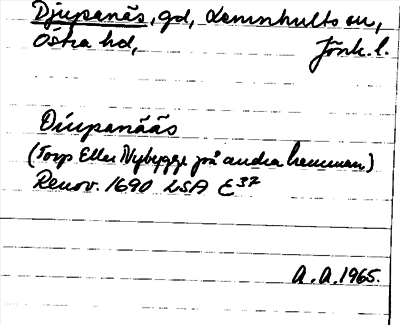 Djupanäs, gd, Lemnhults sn,
Östra hd, Jönk. l.
Diupanääs
(Torp Eller Nybygge på andra hemman)
Renov. 1690 LSA E37
A. A. 1965.